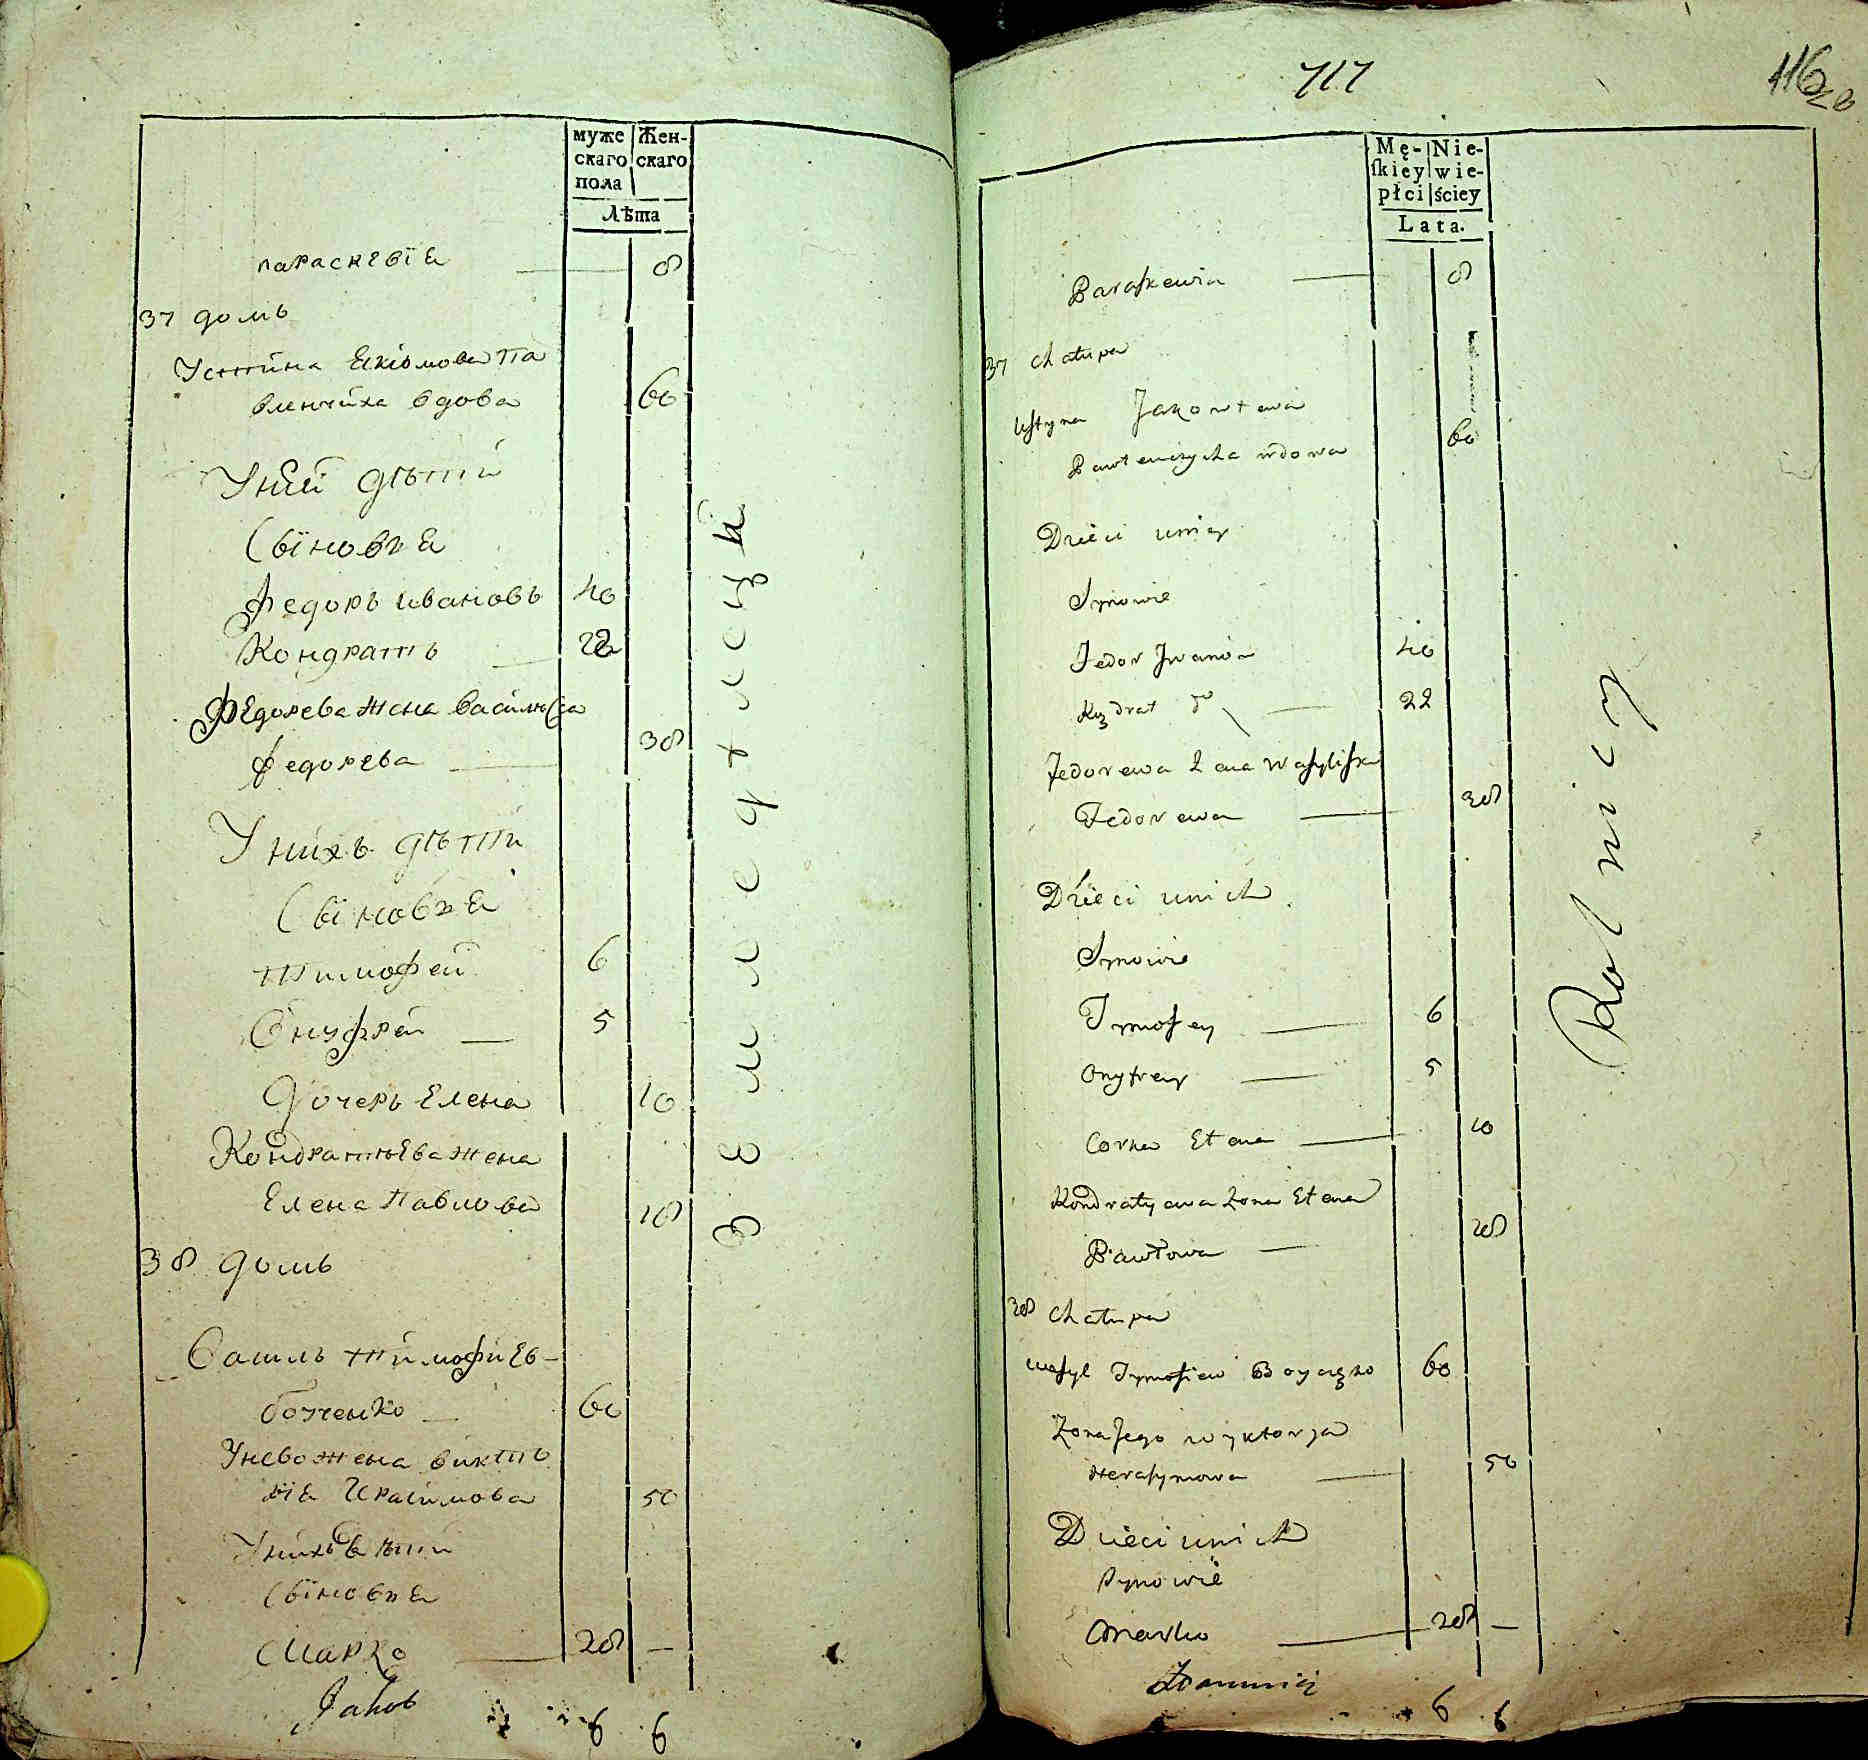 муже Жен-
скаго скаго
пола
Лѣта
параскевїя 8
37 домъ
Устина Екимова Па
вленчиха вдова 60
У ний дѣти
Сыновья
Федоръ ивановъ 40
Кондратъ 22
Федорева жена Василиса
федорева 38
У нихъ дѣти
Сыновья
Тимофей 6
Онуфрей 5
Дочеръ Елена 10
Кондратьева жена
Елена Павлова 18
38 домъ
Василь Тимофиев
бойченко 60
У нево жена викто
рія Ирасимова 50
У нихъ дѣти
Сыновья
Марко 28 —
Jakob
6 6
Земледѣлецы
717
116
Mę- Nie-
ſkiey wie-
płci ściey
Lata.
Paraſkewia 8
37 chałupa
Uſtyna Jakowlewa
Pawlenczycha wdowa 60
Dzieci u niey
Synowie
Fedor Jwanów 40
Kondrat 22
Fedorewa Zona Waſyliſsa
Fedorewa 38
Dzieci u nich
Synowie
Tymofey 6
Onyfrey 5
Corka Elena 10
Kondratyewa Zona Elena
Pawłowa 18
38 chałupa
Waſyl Tymofiew Boyczęko 60
Zona Jego Wyktorya
Heraſymowa 50
Dzieci u nich
Synowie
Marko 28 —
6 6
Rolnicy